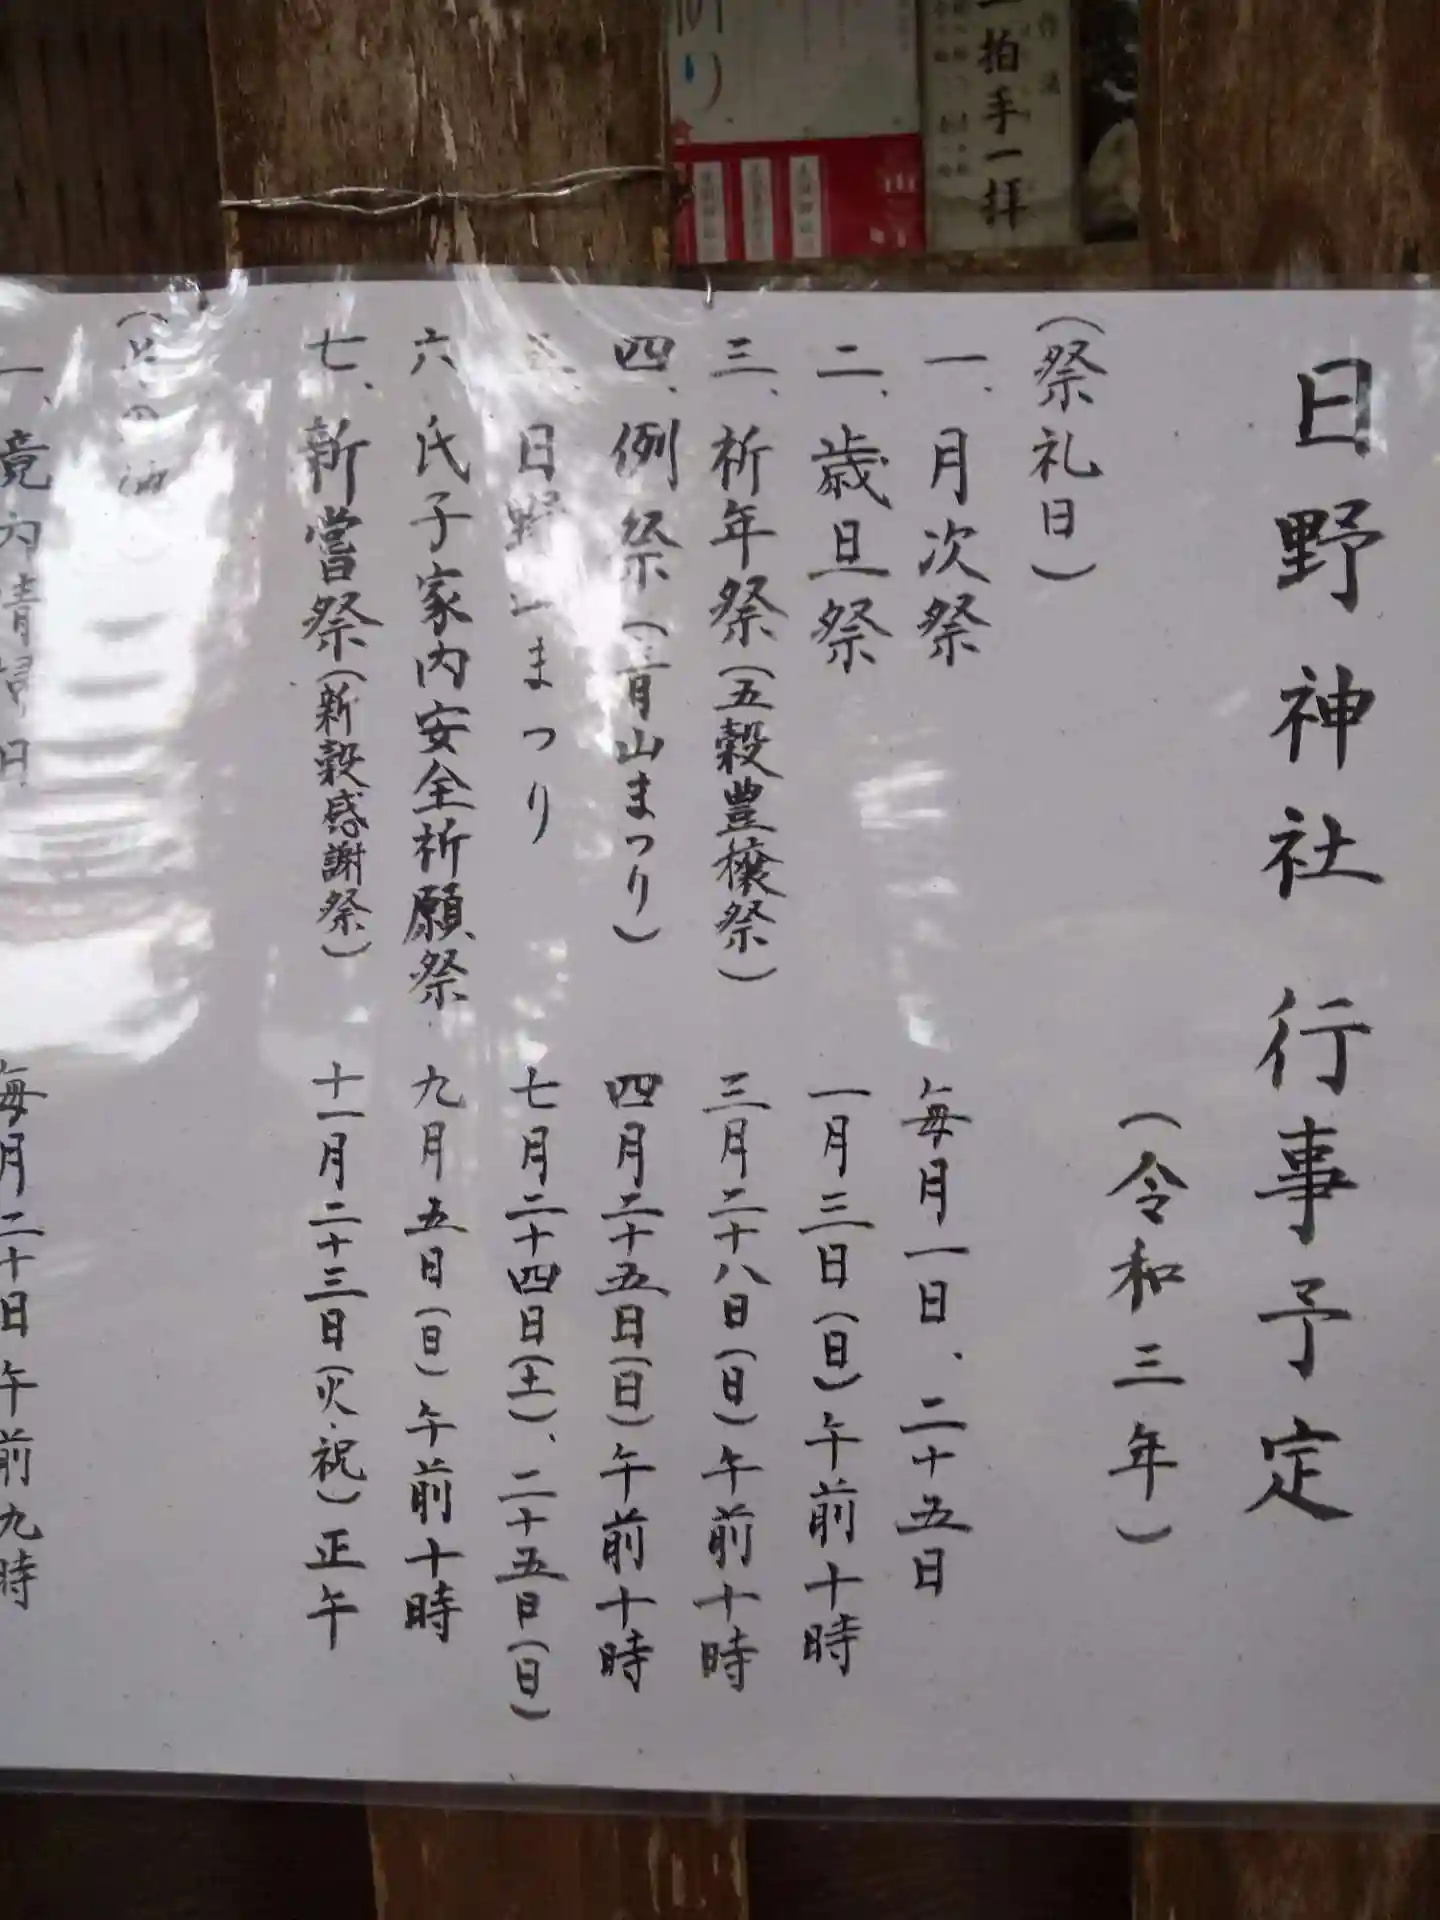 日野神社 行事予定
(令和三年)
(祭礼日)
一、月次祭 毎月一日、二十五日
二、歳旦祭 一月三日(日)午前十時
三、祈年祭(五穀豊穣祭) 三月二十八日(日)午前十時
四、例祭(青山まつり) 四月二十五日(日)午前十時
日野 まつり 七月二十四日(土)、二十五日(日)
六 氏子家内安全祈願祭 九月五日(日)午前十時
七、新嘗祭(新穀感謝祭) 十一月二十三日(火・祝)正午
一、境内清掃日 毎月二十日午前九時
拍手一拝